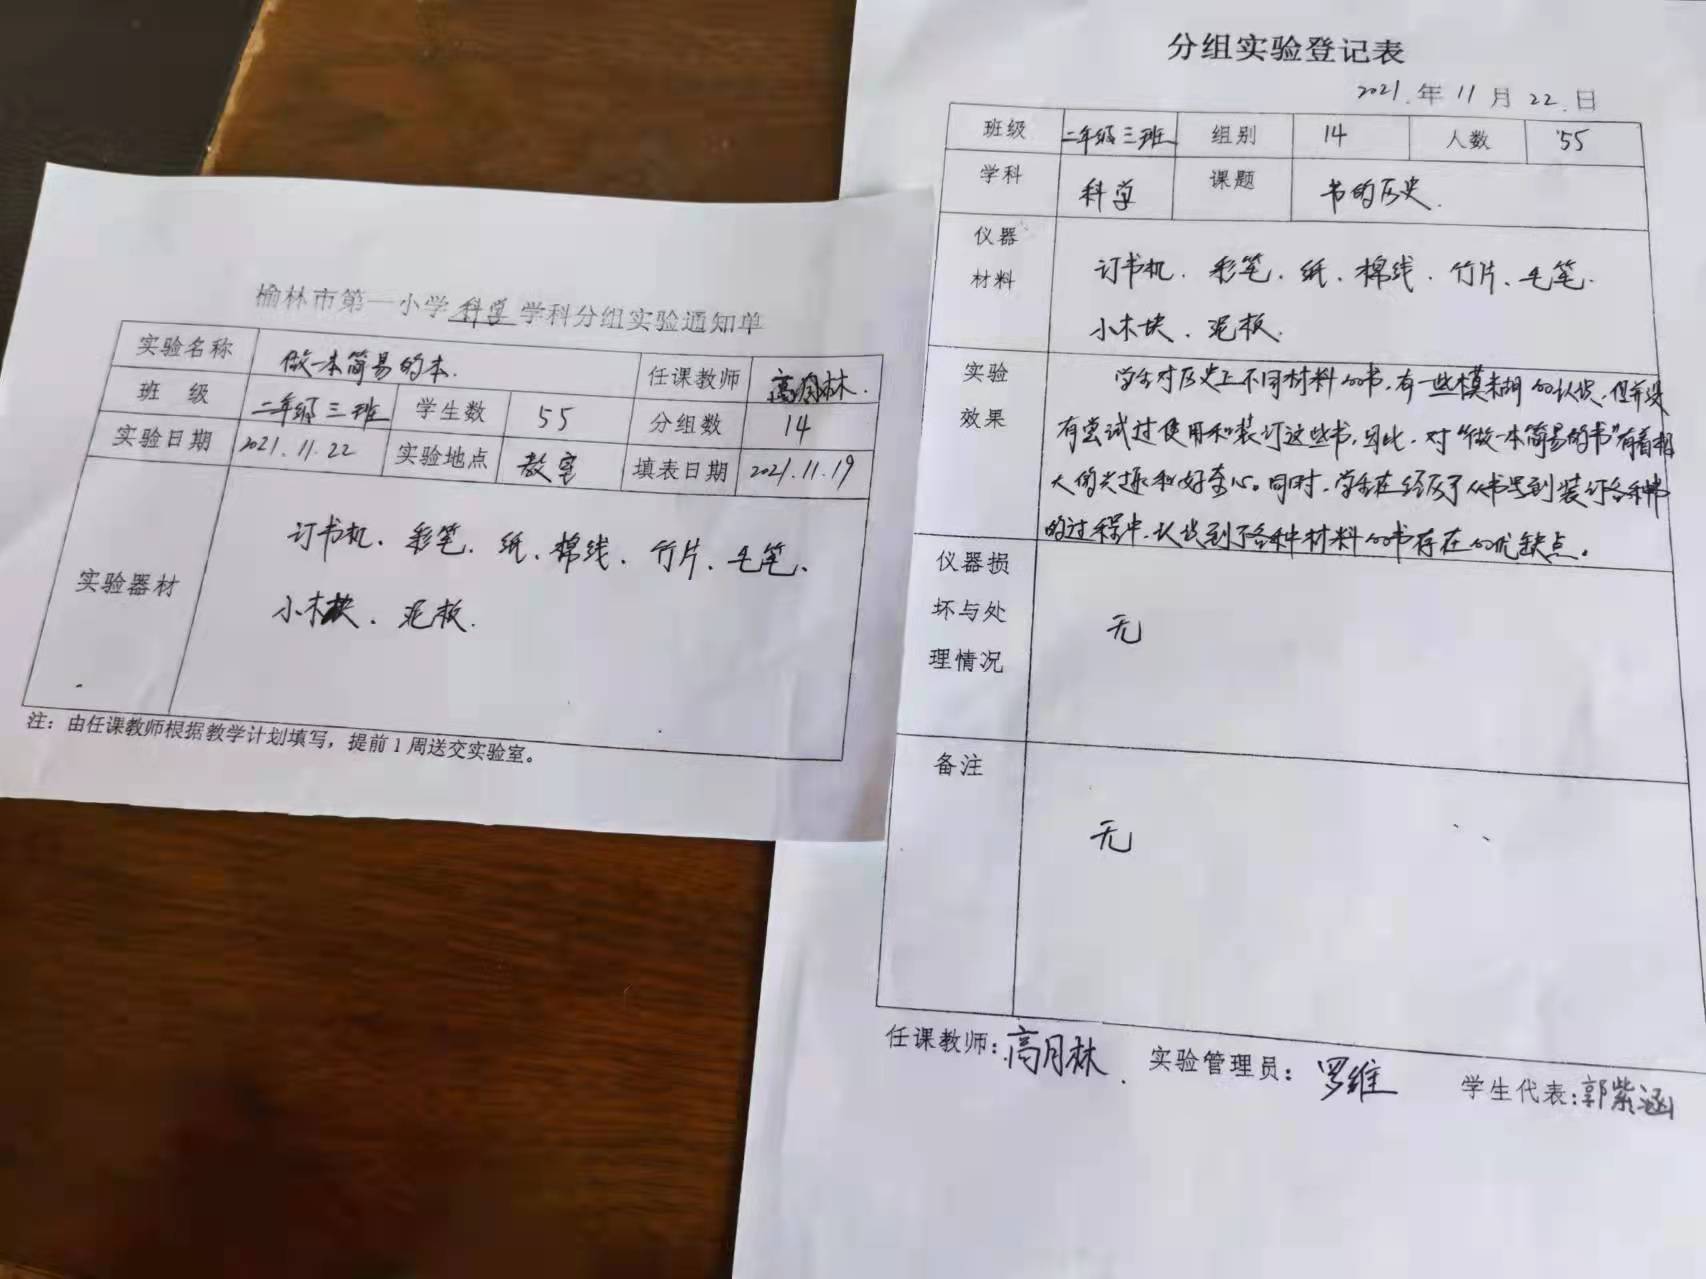 榆林市第一小学科学学科分组实验通知单
实验名称 做一本简易的本. 任课教师 高月林.
班 级 二年级三班 学生数 55 分组数 14
实验日期 2021.11.22 实验地点 教室 填表日期 2021.11.19
实验器材
订书机、彩笔、纸、棉线、竹片、毛笔、
小木块、泥板.
注：由任课教师根据教学计划填写，提前1周送交实验室。
分组实验登记表
2021.年11月22.日
班级 二年级三班 组别 14 人数 55
学科 科学 课题 书的历史.
仪器
材料
订书机、彩笔、纸、棉线、竹片、毛笔.
小木块、泥板.
实验
效果
学生对历史上不同材料的书，有一些模糊的认识，但并没
有尝试过使用和装订这些书，因此，对“做一本简易的书”有着相
大的兴趣和好奇心。同时，学生在经历了从书写到装订各种书
的过程中，认识到了各种材料的书存在的优缺点。
仪器损
坏与处
理情况
无
备注
无
任课教师：高月林. 实验管理员：罗维 学生代表：郭紫涵